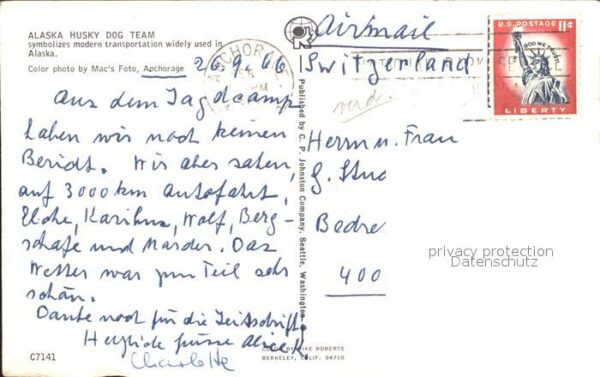 ALASKA HUSKY DOG TEAM
symbolizes modern transportation widely used in
Alaska.
Color photo by Mac's Foto, Anchorage
26.9.66
Aus dem Jagdcamp
haben wir noch keinen
Bericht. Wir aber sahen,
auf 3000 km Autofahrt,
Elche, Karibus, Wolf, Berg-
schafe und Marder. Das
Wetter war zum Teil sehr
schön.
Danke noch für die Zeitschrift
Herzliche Grüsse
Charlotte
C7141
Published by C. P. Johnston Company, Seattle, Washington
MIKE ROBERTS
BERKELEY, CALIF. 94710
ANCHORAGE
PM
Airmail
Switzerland
Herrn u. Frau
400
U.S. POSTAGE 11¢
IN GOD WE TRUST
LIBERTY
privacy protection
Datenschutz